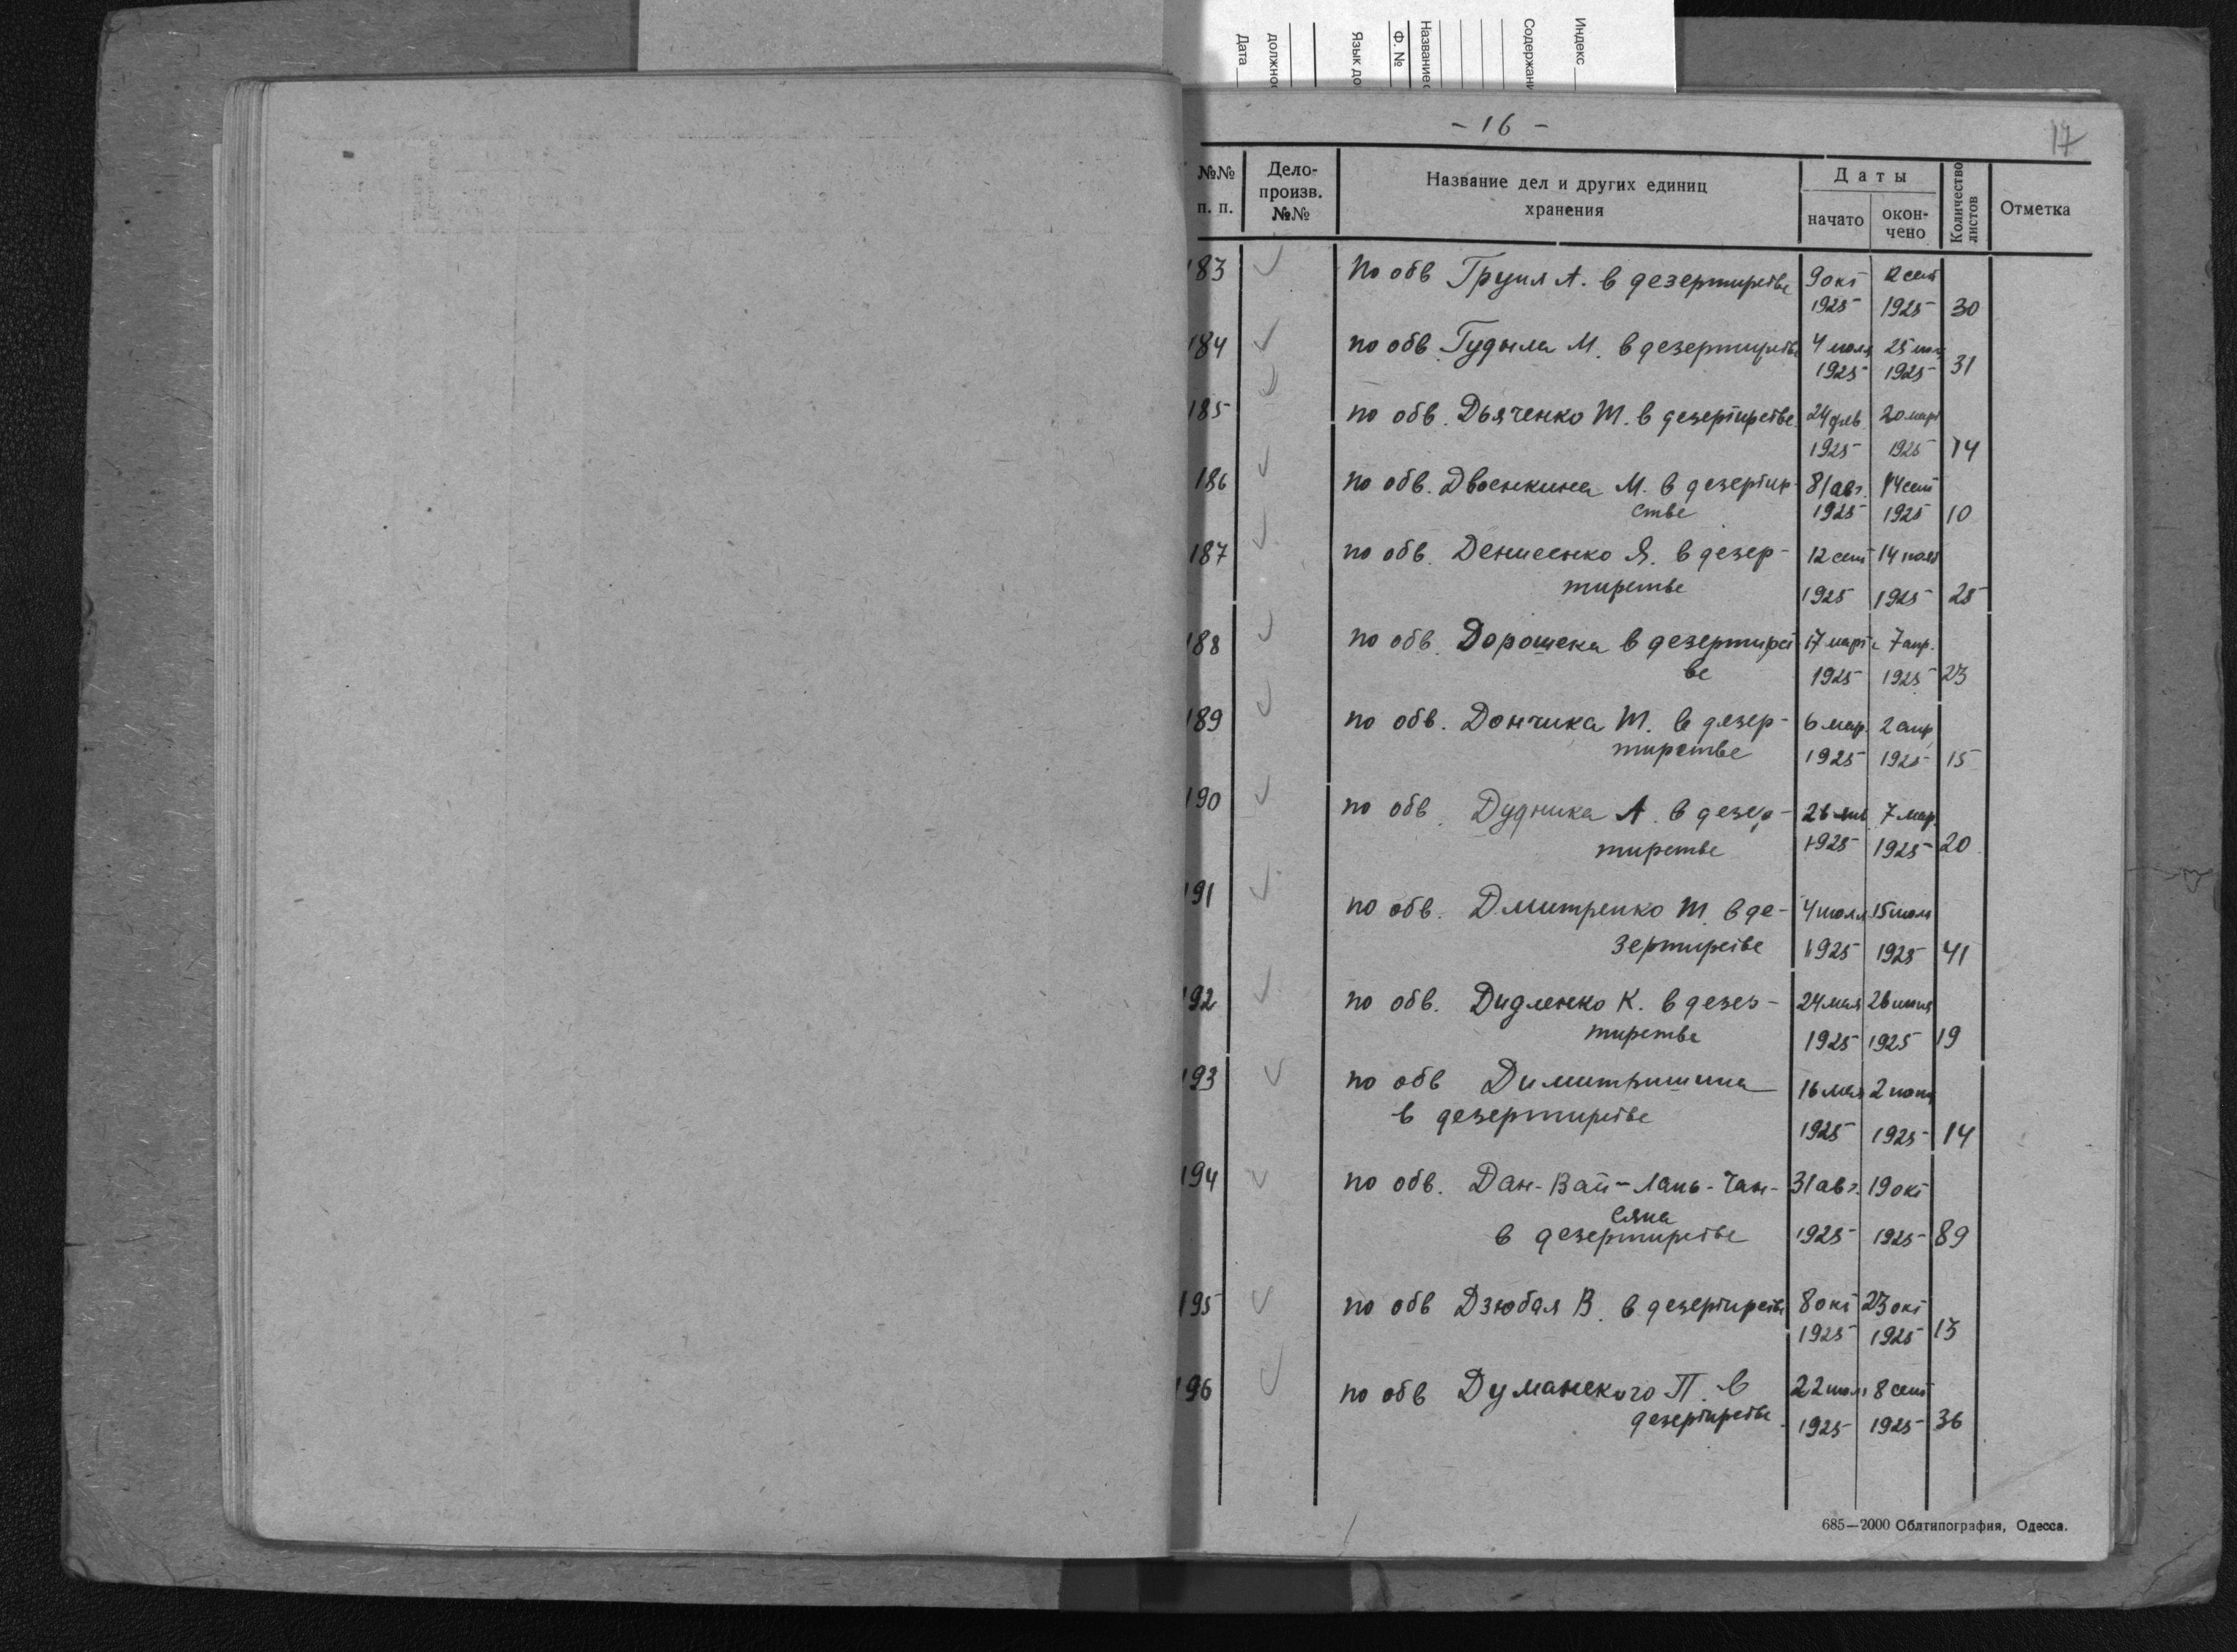 Индекс
Содержани
Название
Ф. №
Язык до
должно
Дата
- 16 -
17
№№ п. п.
Дело-произв. №№
Название дел и других единиц хранения
Даты
начато
окончено
Количество листов
Отметка
183 по обв Груия А. в дезертирстве 9 окт 2 сент
1925 1925 30
184 по обв. Гудыла М. в дезертирстве 4 июля 25 июл
1925 1925 31
185 по обв. Дьяченко Т. в дезертирстве 24 фев 20 март
1925 1925 14
186 по обв. Двоенкина М. в дезертир- 31 авг. 14 сент
стве 1925 1925 10
187 по обв. Денисенко Я. в дезер- 12 сент 14 нояб
тирстве 1925 1925 25
188 по обв. Дорошека в дезертирст 17 март 7 апр.
ве 1925 1925 23
189 по обв. Дончика Т. в дезер- 6 мар. 2 апр
тирстве 1925 1925 15
190 по обв. Дудника А. в дезер- 26 янв 7 мар.
тирстве 1925 1925 20
191 по обв. Дмитренко Т. в де- 4 июля 15 июля
зертирстве 1925 1925 41
192 по обв. Дидленко К. в дезез- 24 мая 26 июня
тирстве 1925 1925 19
193 по обв Димитришина 16 мая 2 июня
в дезертирстве
1925 1925 14
194 по обв. Дан-Вай-Лань-Чан- 31 авг. 19 окт
сяна
в дезертирстве 1925 1925 89
195 по обв Дзюбая В. в дезертирств 8 окт 23 окт
1925 1925 13
196 по обв Думанского П. в 22 июл 8 сент
дезертирстве 1925 1925 36
685—2000 Облтипография, Одесса.